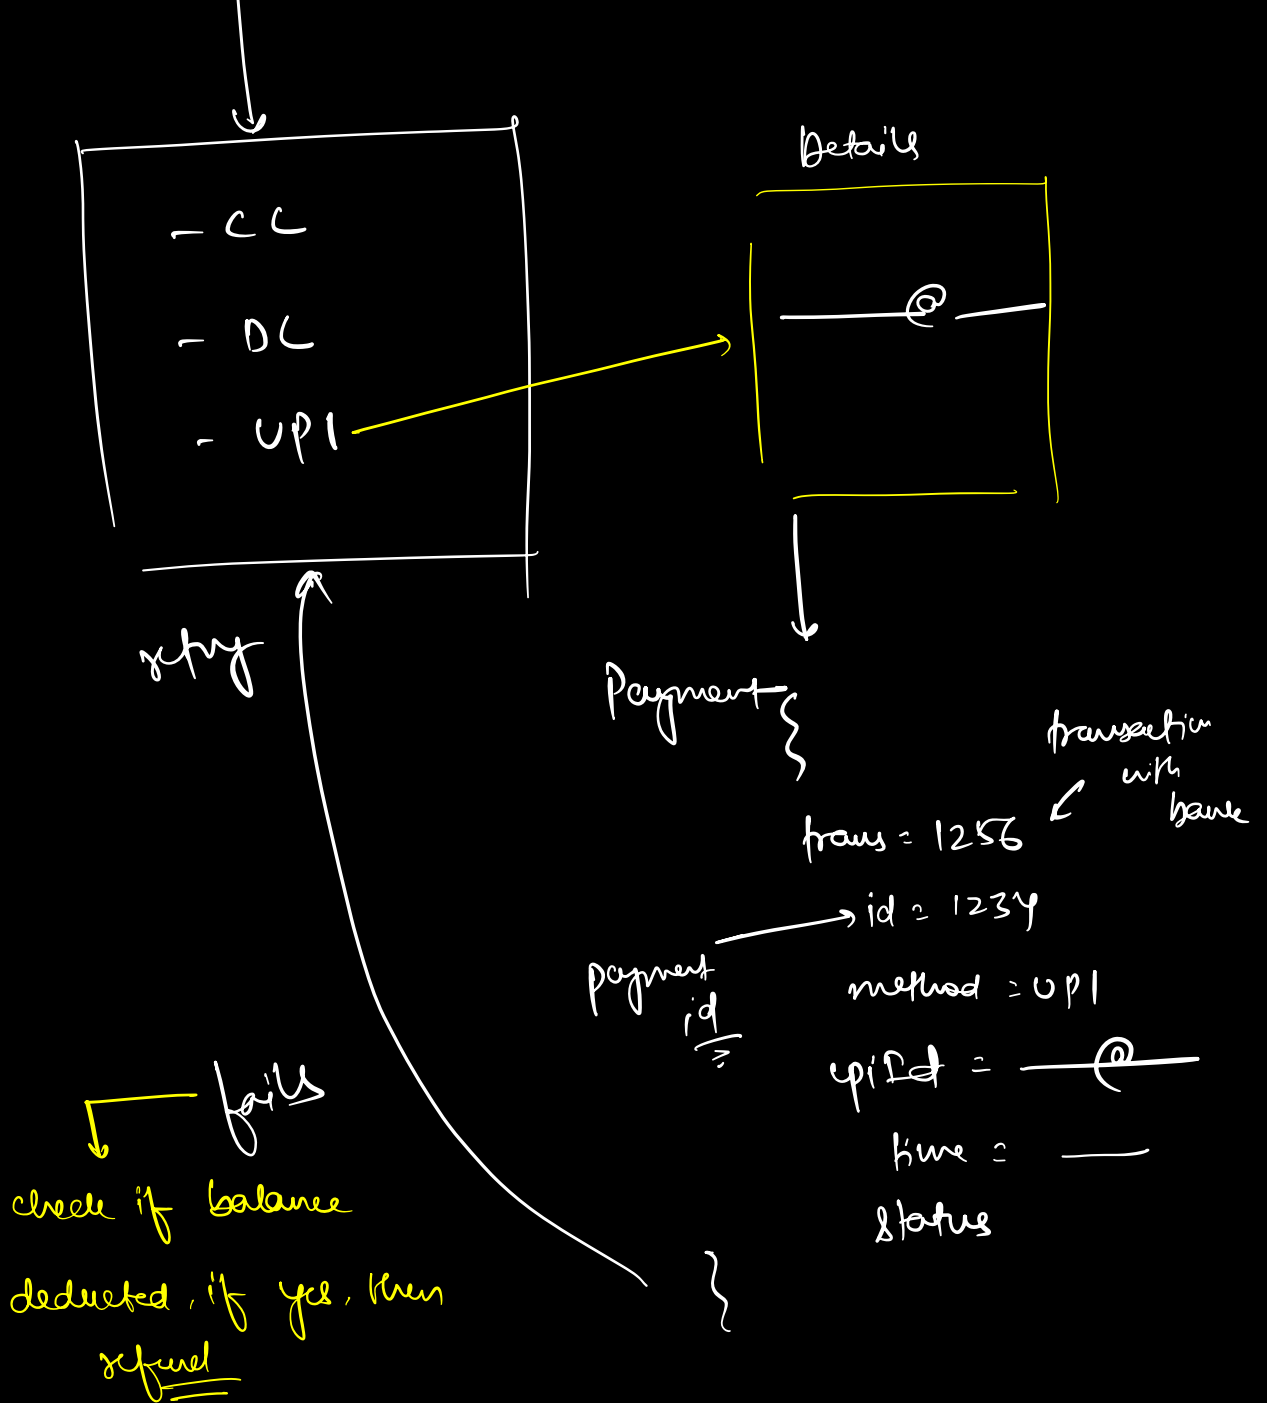 - CC
- DC
- UPI
retry
Details
@
Payment {
transaction
with
bank
trans = 1256
id = 1234
payment
id
method = UPI
upiId = @
time =
status
}
fails
check if balance
deducted, if yes, then
refund